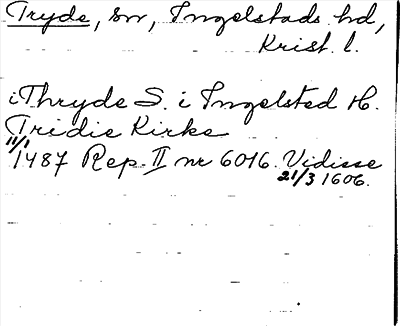 Tryde, sn, Ingelstads hd,
Krist. l.
i Thryde S. i Ingelsted H.
Tridie Kirke
11/1
1487 Rep. II nr 6016. Vidisse
21/3 1606.